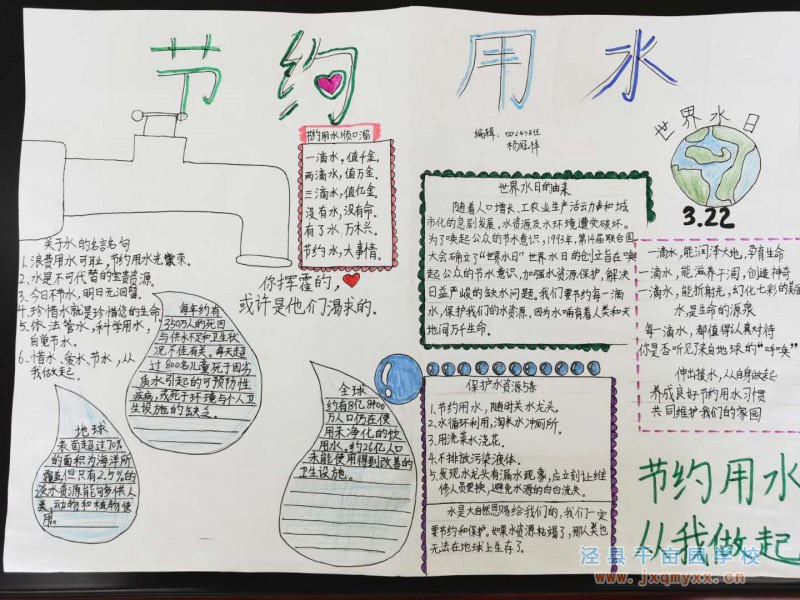 节约用水
编辑：四(4)班
世界水日
3.22
节约用水顺口溜
一滴水，值千金。
两滴水，值万金。
三滴水，值亿金。
没有水，没有命。
有了水，万木兴。
节约用水，大事情。
关于水的名言名句
1.浪费用水可耻，节约用水光荣。
2.水是不可代替的宝贵资源。
3.今日不节水，明日无泪留。
4.珍惜水就是珍惜您的生命
5.依法管水，科学用水，
自觉节水。
6.惜水、爱水、节水，从
我做起。
你挥霍的，
或许是他们渴求的。
每年约有
350万人的死因
与供水不足和卫生状
况不佳有关。每天超
过800名儿童死于因劣
质水引起的可预防性
疾病，或死于环境与个人卫
生设施的缺乏。
地球
表面超过70%
的面积为海洋所
覆盖但只有2.5%的
淡水资源能够供人
类，动物和植物使
用。
全球
约有8亿8400
万人口仍在使
用未净化的饮
用水，约26亿人口
未能使用得到改善的
卫生设施。
世界水日的由来
随着人口增长、工农业生产活动和城
市化的急剧发展，水资源及水环境遭受破坏。
为了唤起公众的节水意识，1993年，第47届联合国
大会确立了“世界水日”世界水日的创立旨在唤
起公众的节水意识，加强水资源保护，解决
日益严峻的缺水问题。我们要节约每一滴
水，保护我们的水资源，因为水哺育着人类和天
地间万千生命。
保护水资源5条
1.节约用水，随时关水龙头。
2.水循环利用，淘米水冲厕所。
3.用洗菜水浇花。
4.不排放污染液体。
5.发现水龙头有漏水现象，应立刻让维
修人员更换，避免水源的白白流失。
水是大自然恩赐给我们的，我们一定
要节约和保护。如果水资源枯竭了，那人类也
无法在地球上生存了。
一滴水，能润泽大地，孕育生命
一滴水，能滋养干涸，创造神奇
一滴水，能折射光，幻化七彩的美丽
水是生命的源泉
每一滴水，都值得认真对待
你是否听见了来自地球的“呼唤”
伸出援水，从自身做起
养成良好节约用水习惯
共同维护我们的家园
节约用水
从我做起
泾县千亩园学校
www.jxqmyxx.cn